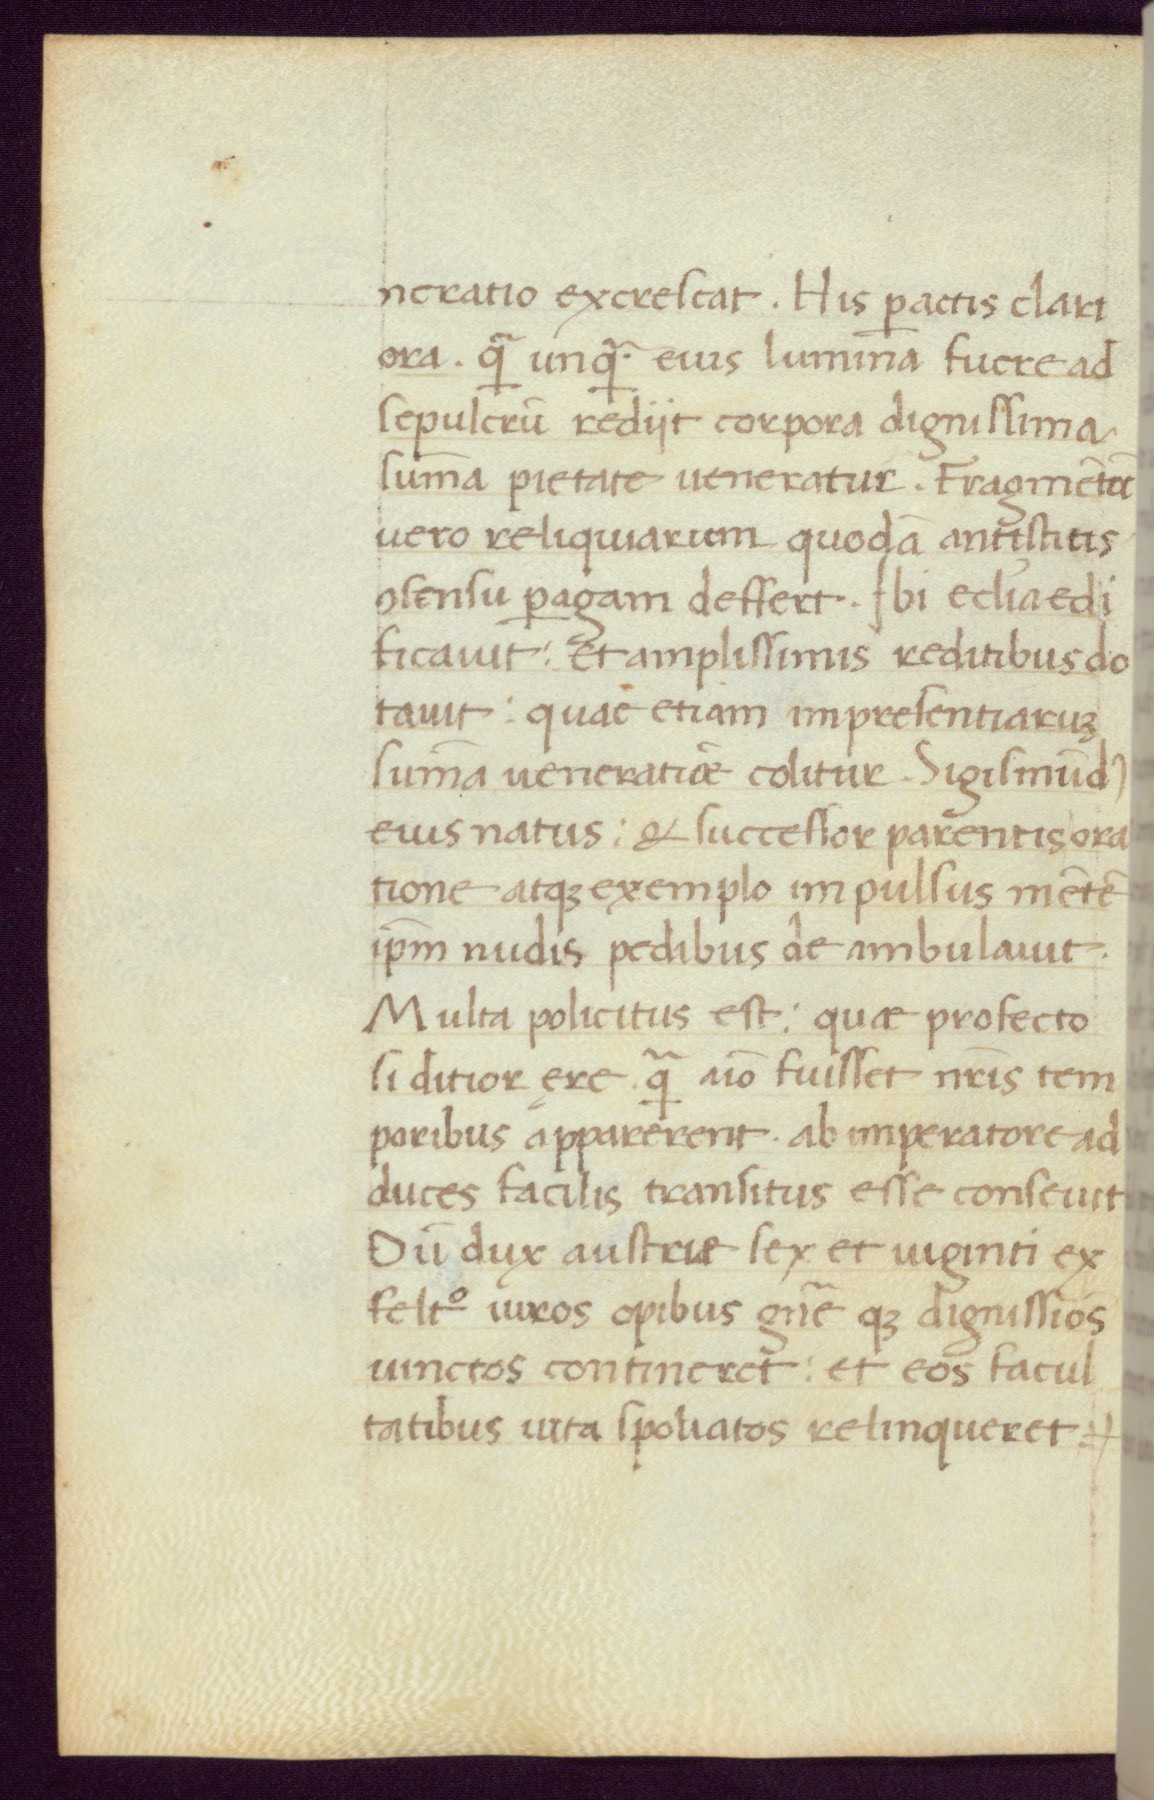 neratio excrescat. His ꝑactis clari
ora. q̃ unq̃. eius lumina fuere ad
sepulcrū rediit corpora dignissima
sum̄a pietate ueneratur. Fragmētū
uero reliquiarum quodā antistitis
ꝯsensu ꝑagam deffert. Ibi eclia edi
ficauit: Et amplissimis reditibus do
tauit: quae etiam impresentiaruꝫ
sum̄a ueneratiōe colitur. Sigismūdꝰ
eius natus: & successor parentis ora
tione atqꝫ exemplo impulsus mētē
ip̄m nudis pedibus de ambulauit.
Multa policitus est: quae profecto
si ditior ęre q̃ aīo fuisset nr̄is tem
poribus apparerent. ab imperatore ad
duces facilis transitus esse conseuit
Dū dux austriae sex et uiginti ex
felt.º uiros opibus gn̄e qꝫ dignissiōs
uinctos contineret: et eos facul
tatibus uita spoliatos relinqueret